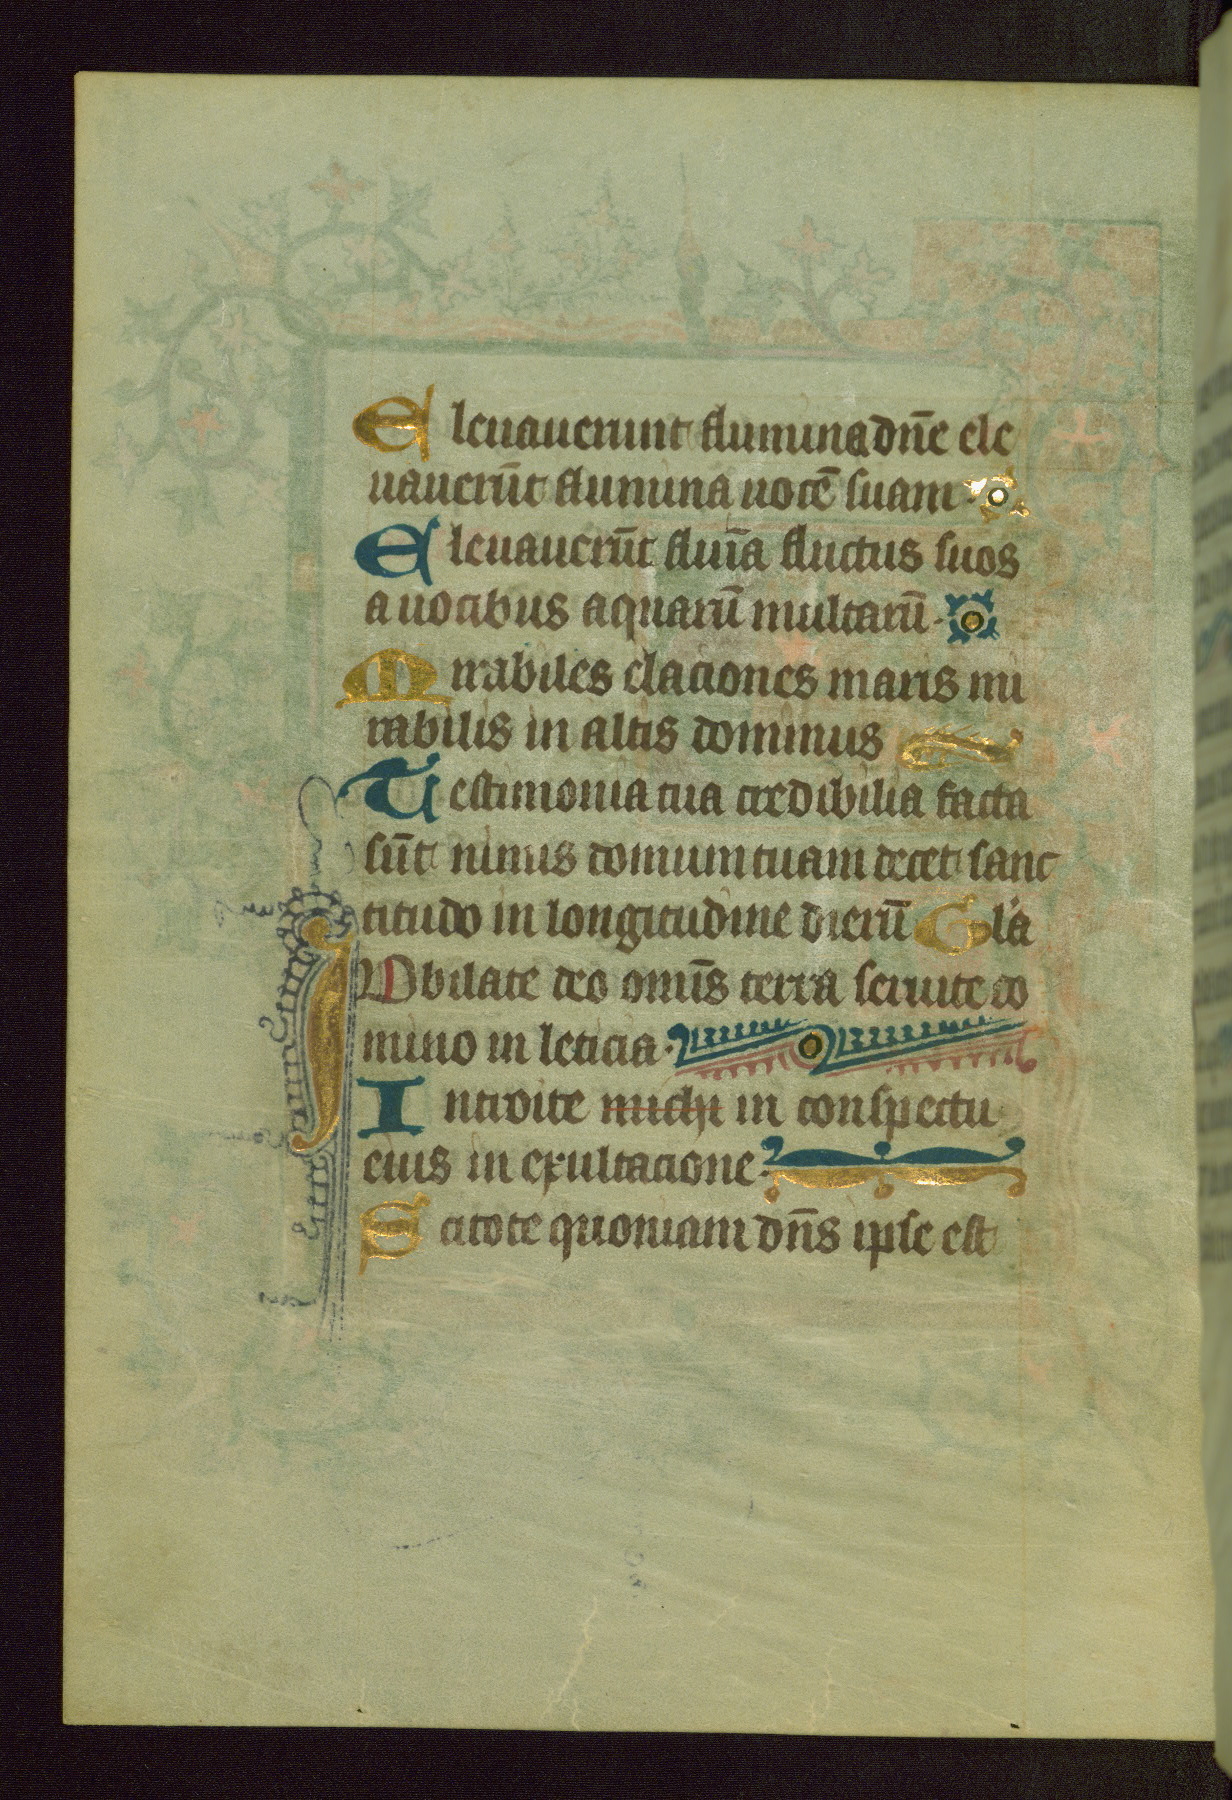 Eleuauerunt flumina dn̄e ele
uauerūt flumina uocē suam
Eleuauerūt flūīa fluctus suos
a uocibus aquarū multarū
Mirabiles elaciones maris mi
rabilis in altis dominus
Testimonia tua credibilia facta
sūt nimis domum tuam decet sanc
titudo in longitudine dierū Gl'a
IUbilate deo omīs terra seruite do
mino in leticia
Introite michi in conspectu
eius in exultacione
Scitote quoniam dn̄s ipse est